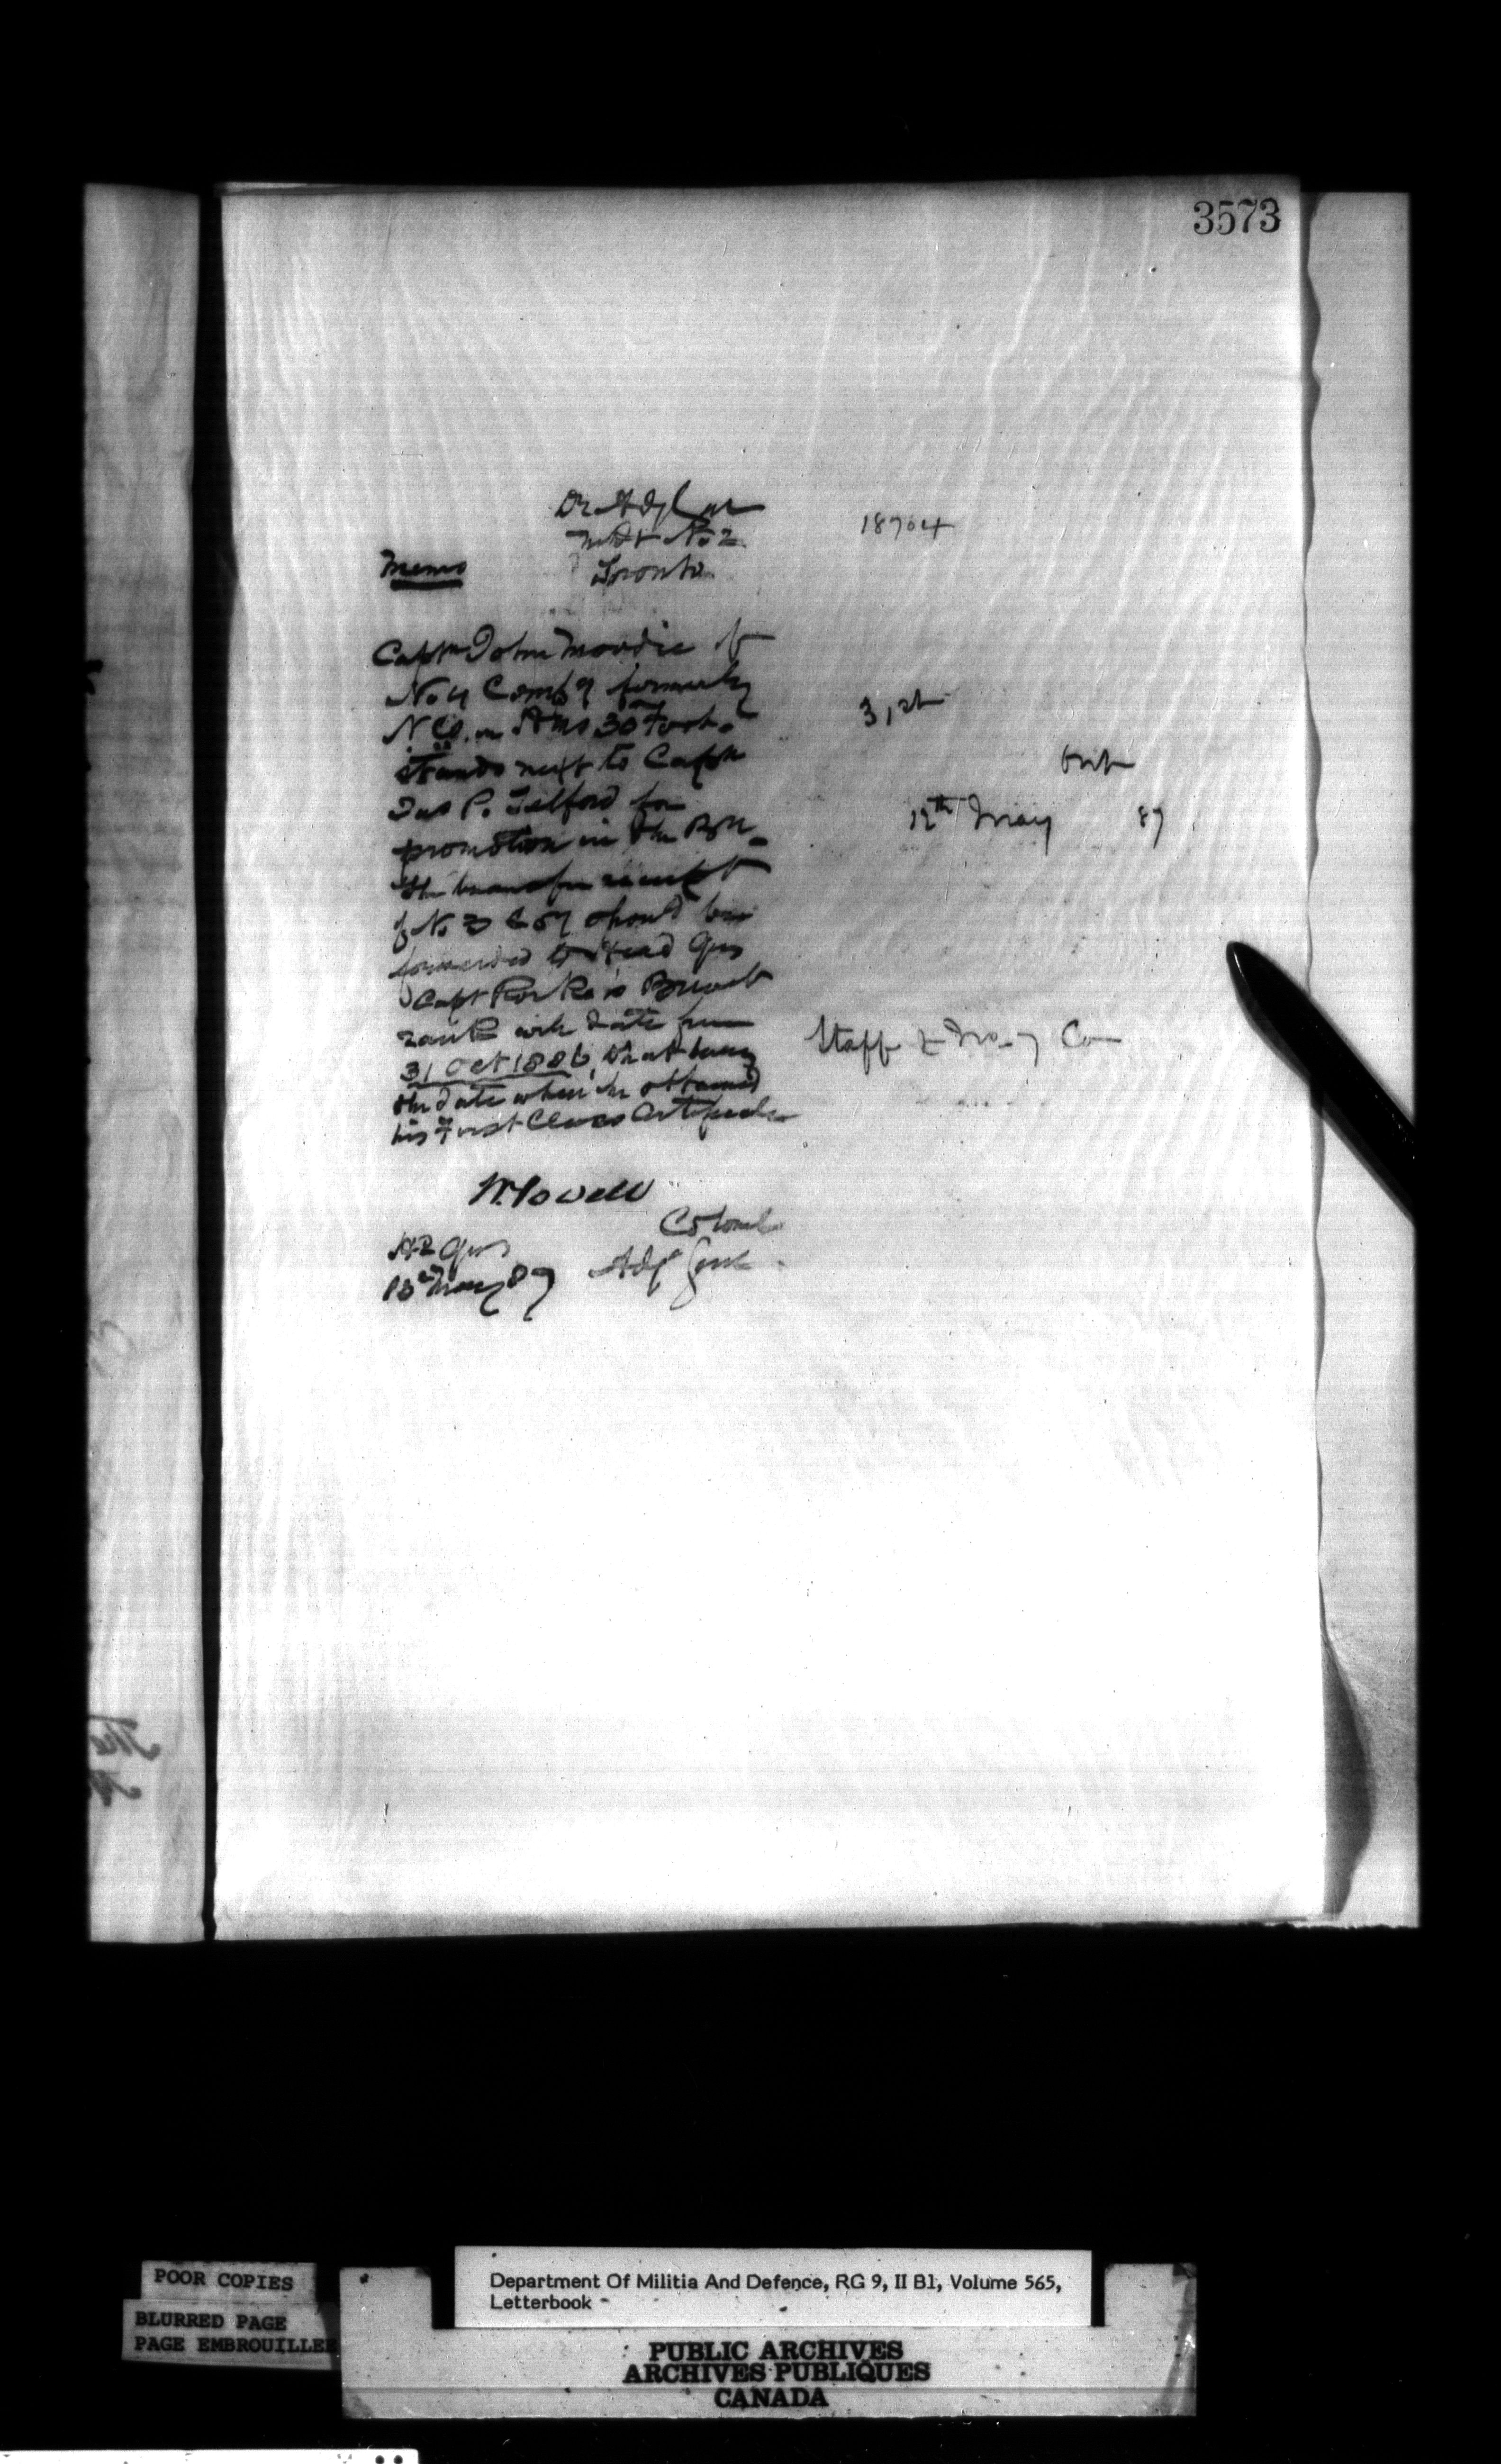 3573
Memo
Mil Dt No 2
Toronto
18704
Captn John Moodie of
No 4 Comp'y formerly
30 Foot.
stands next to Captn
Jas P. Telford for
promotion in the Bn.
The transfer receipt
of No 3 Coy should be
forwarded to Head Qrs
Capt Rorke's Brevet
rank will date from
31 Oct 1886, that being
the date when he obtained
his First Class Certificate
31st
12th May 87
Staff &
W. Powell
Colonel
Adjt Genl
Hd Qrs
13th May 87
POOR COPIES
BLURRED PAGE
PAGE EMBROUILLEE
Department Of Militia And Defence, RG 9, II B1, Volume 565,
Letterbook
PUBLIC ARCHIVES
ARCHIVES PUBLIQUES
CANADA